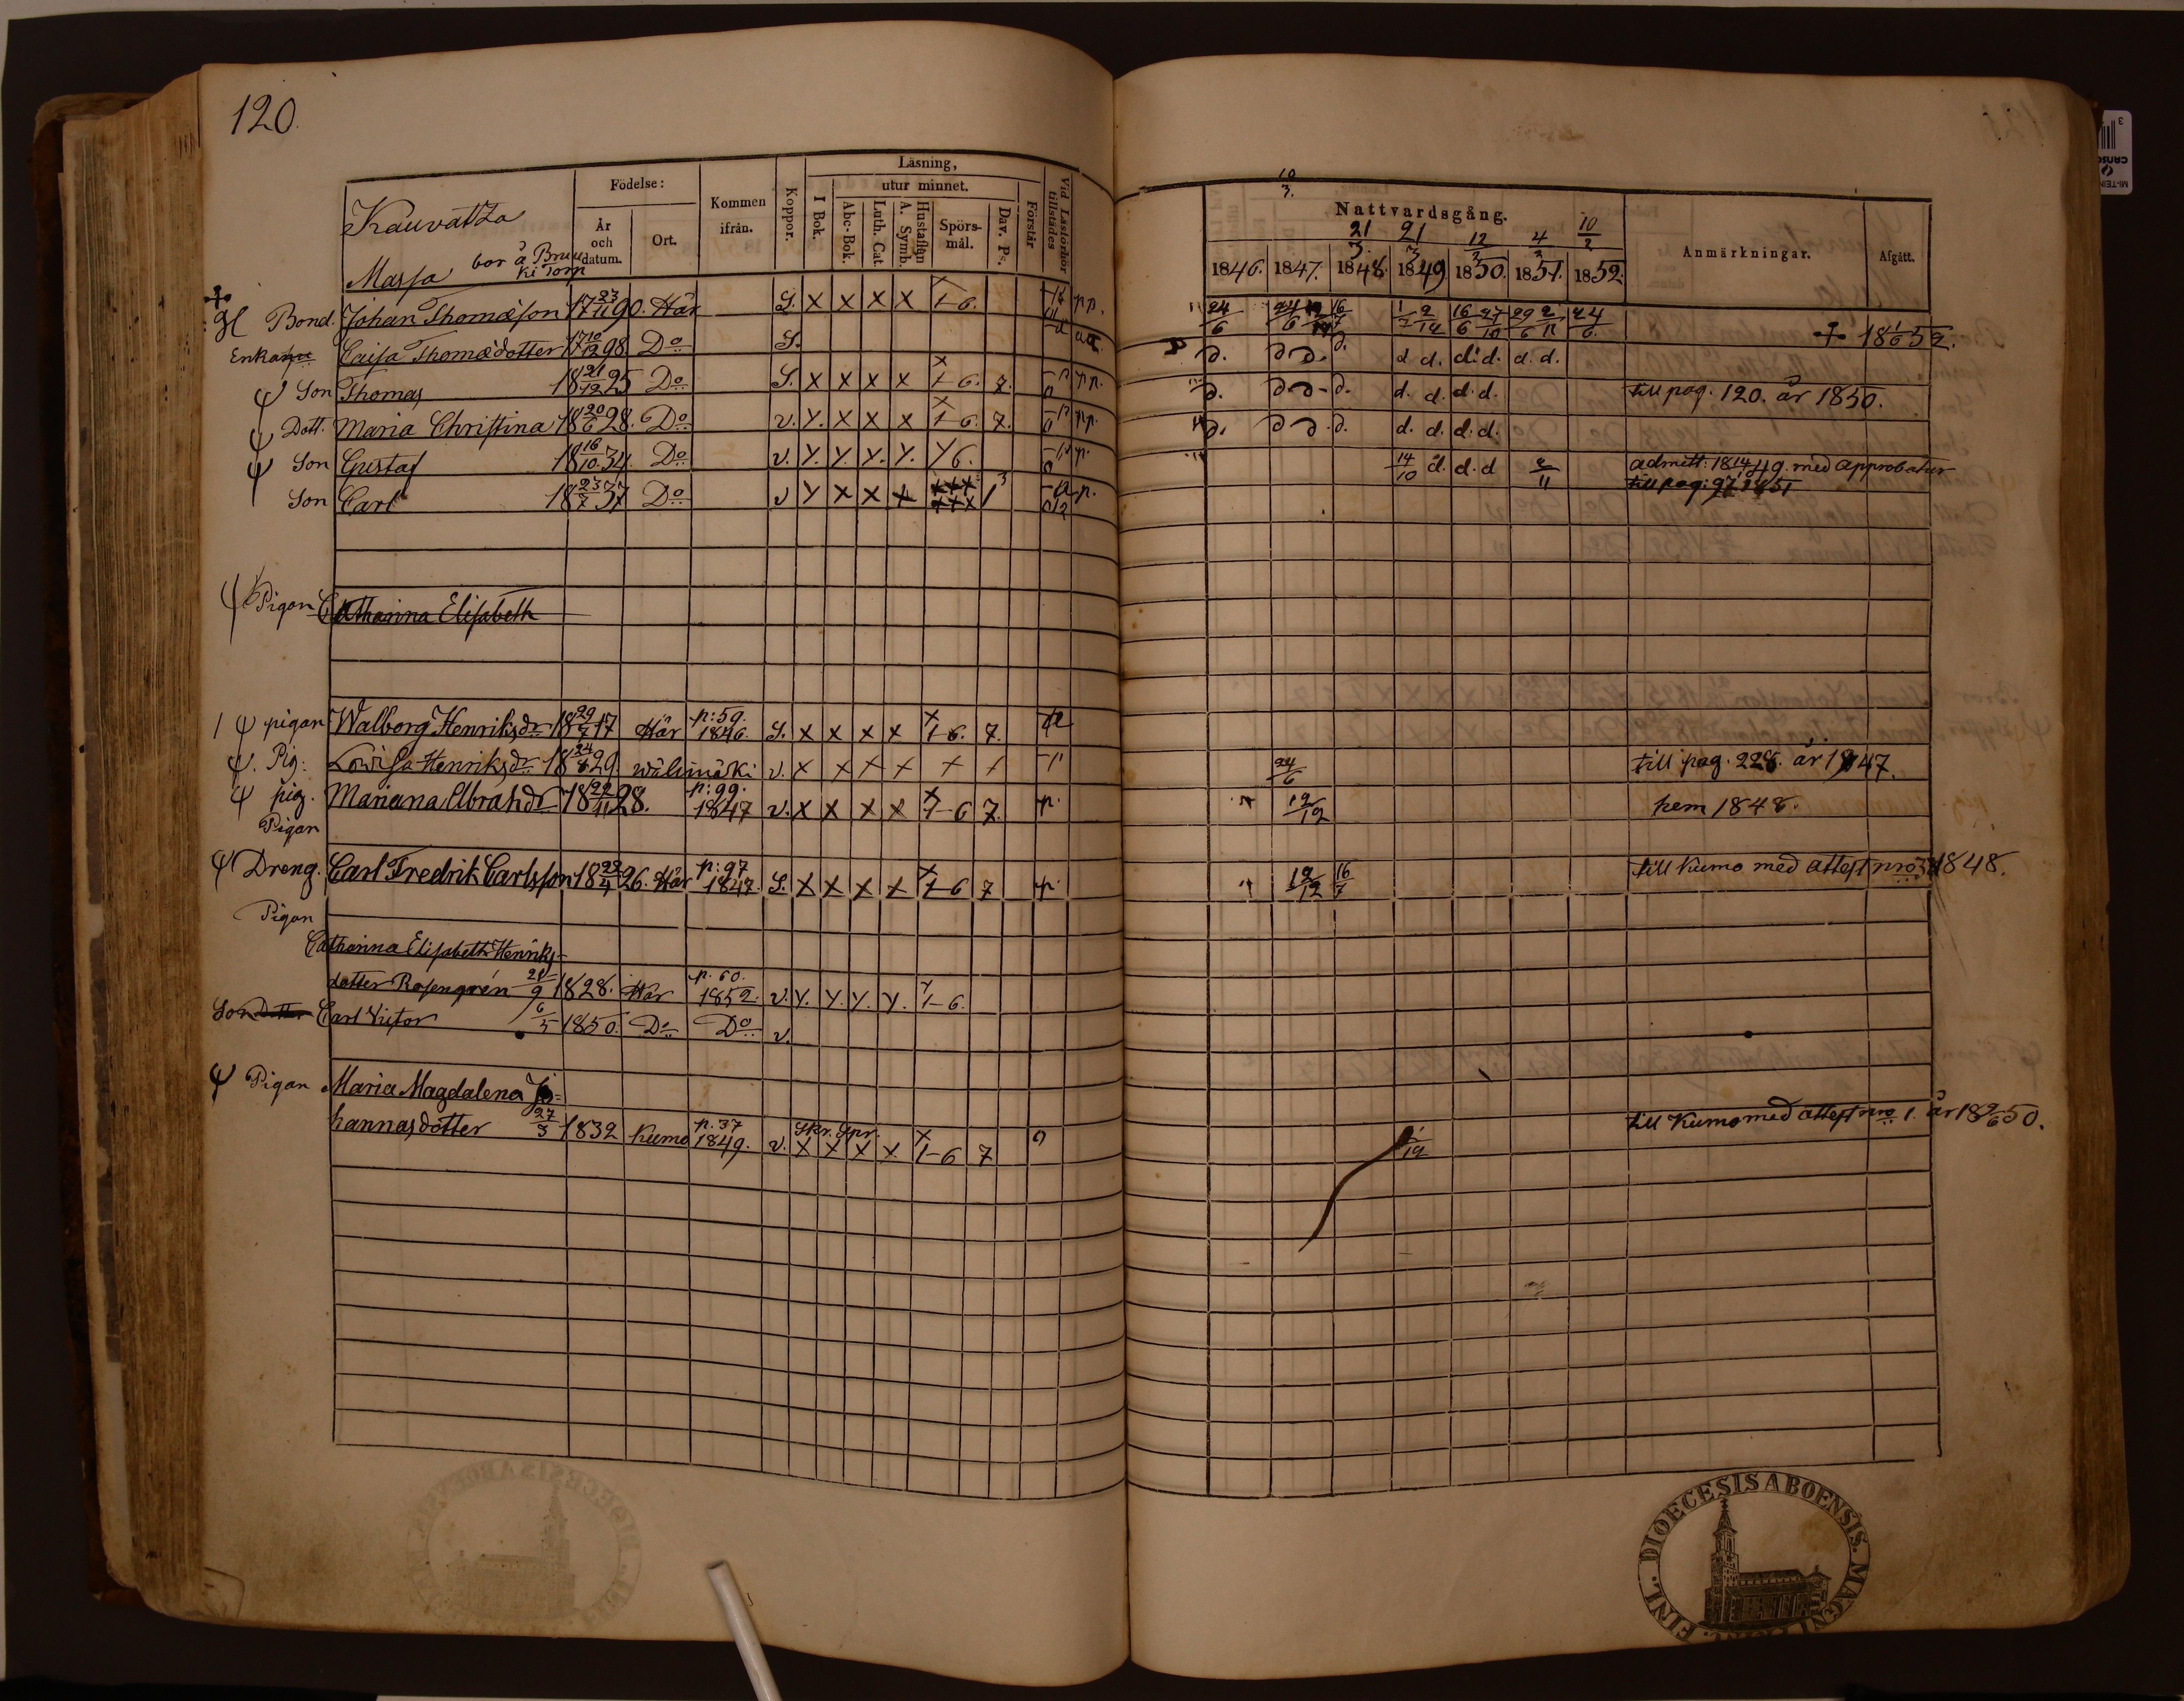 120.
Kauvatza
Massa
bor å
ki Torp
Födelse:
År och datum.
Ort.
Kommen ifrån.
Koppor.
Läsning,
I Bok.
utur minnet.
Abc-Bok.
Luth. Cat.
Hustaflan A. Symb.
Spörs-mål.
Dav. Ps.
Förstår
Vid Läsförhör tillstädes
Bond. Johan Thomæson 17 23/11 90. Här S. x x x x 1-6. p.p.
Enka Caisa Thomædotter 17 10/12 98 Do S.
Son Thomas 18 21/12 25 Do S. x x x x 1-6. 7. p.p.
Dott. Maria Christina 18 20/6 28. Do v. y. x x x 1-6. 7. p.p.
Son Gustaf 18 16/10 34. Do v. y. y. y. y. y 6. p.
Son Carl 18 23/7 37 Do v y x x x p.
Pigan Catharina Elisabeth
pigan Walborg Henriksdr 18 29/7 17 Här p: 59. 1846. S. x x x x 1-6. 7.
Pig: Lovisa Henriksdr 18 24/8 29 wälimäki v. x x x x x x
pig. Mariana Abrahdr 18 22/11 28. p: 99. 1847 v. x x x x 1-6 7. p.
Pigan
Dreng. Carl Fredrik Carlsson 18 22/4 26. Här p: 97 1847. S. x x x x 1-6 7 p.
Pigan
Catharina Elisabeth Henriks-
dotter Rosengrén 21/9 1828. Här p. 60. 1852. v. y. y. y. y. 1-6.
Son Dotter Carl Victor 6/5 1850. Do Do v.
Pigan Maria Magdalena Jo=
hannasdotter 27/3 1832 Kumo p. 37 1849. v. Skr. Spr. x x x x 1-6 7
10
3.
Nattvardsgång.
21/3. 21/3 12/3 4/3 10/2
1846. 1847. 1848. 1849 1850. 1851. 1852.
Anmärkningar.
Afgått.
24/6 16/7 24/6. 18 1/6 52.
d. d. d. d. d. d. d. d. d. d.
d. d. d. d. d. d. d. d. till pag. 120. år 1850.
d. d. d. d. d. d. d. d.
14/10 d. d. d admitt: 18 14/10 49. med approbatur
till pag: 97 1851
24/6 till pag. 228. år 1847.
12/12 hem 1848.
12/12 16/7 till Kumo med attest nro 1848.
till Kumo med attest nro 1. år 18 9/6 50.
DIOECESIS ABOENSIS. MAGNI DUC. FINL.